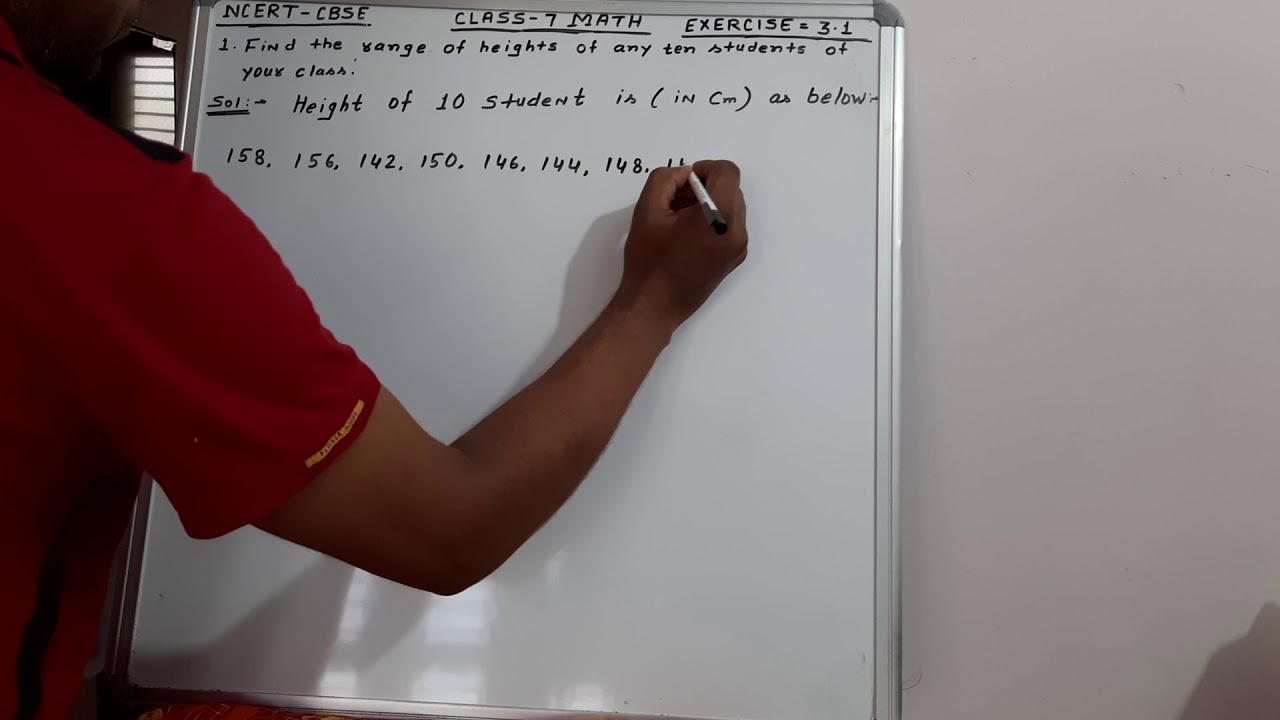 NCERT-CBSE CLASS-7 MATH EXERCISE = 3.1
1. Find the range of heights of any ten students of
your class.
Sol:- Height of 10 student is (in Cm) as below:-
158, 156, 142, 150, 146, 144, 148,